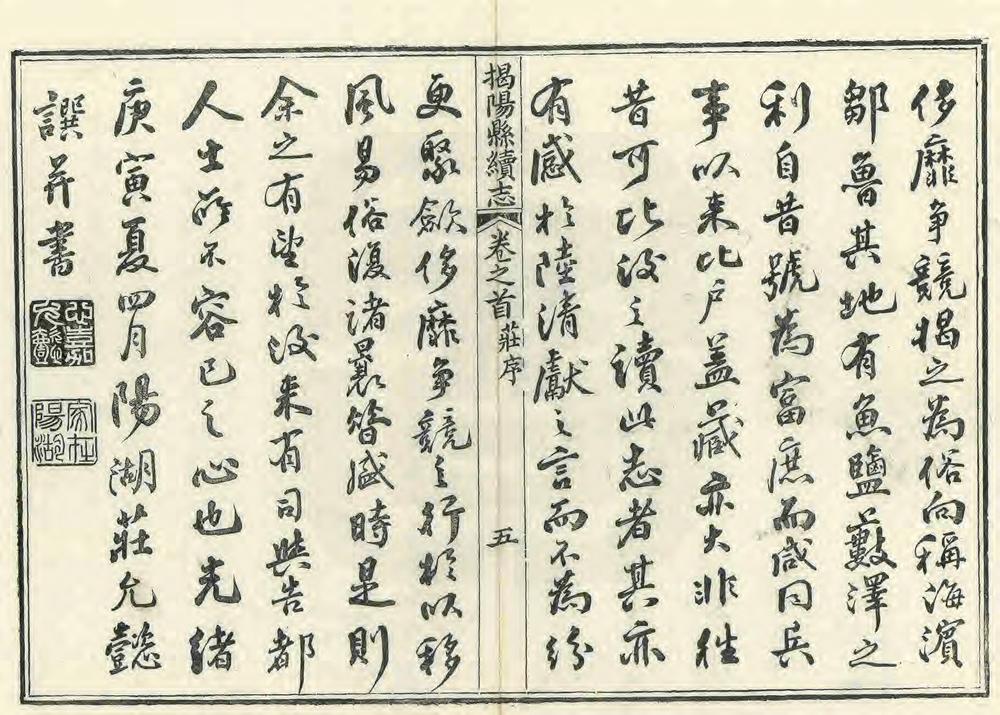 侈靡争競揭之為俗向稱海濱
鄒魯其地有魚鹽藪澤之
利自昔號為富庶而咸同兵
事以来比户盖藏亦大非往
昔可比後之讀此志者其亦
有感於陸清獻之言而不為紛
揭陽縣續志 卷之首 莊序 五
更聚歛侈靡争競之行於以移
風易俗復諸曩昔盛時是則
余之有望於後来有司與吿都
人士所不容已之心也光緒
庚寅夏四月陽湖莊允懿
譔并書
家在陽湖